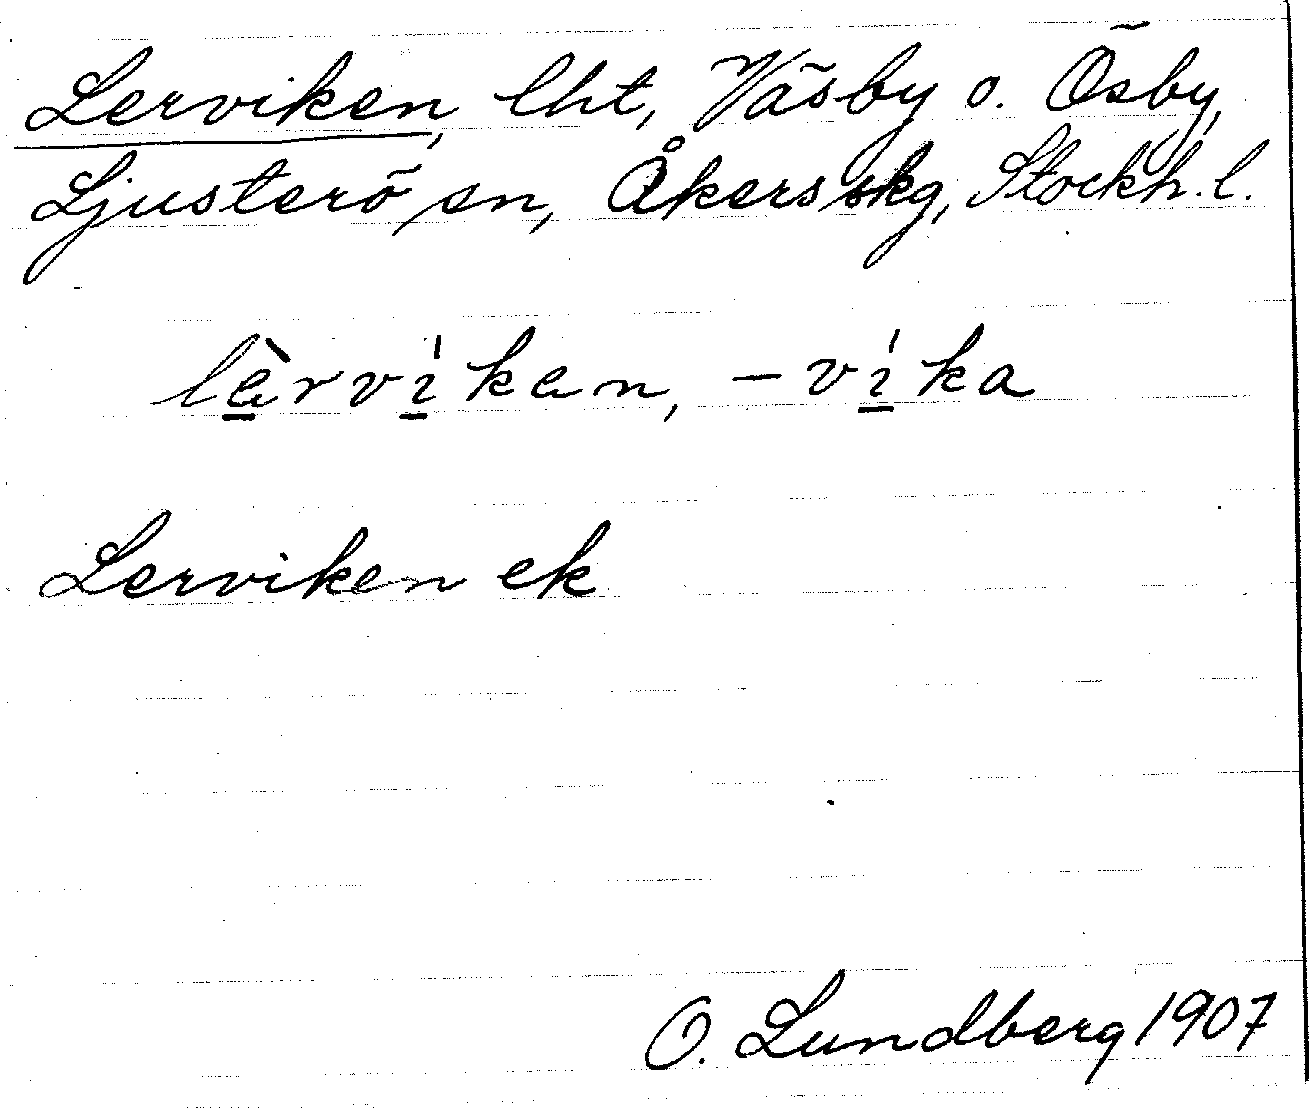 Lerviken, lht, Väsby o. Ösby,
Ljusterö sn, Åkers skg, Stockh. l.
lèrvíken, –víka
Lerviken ek
O. Lundberg 1907